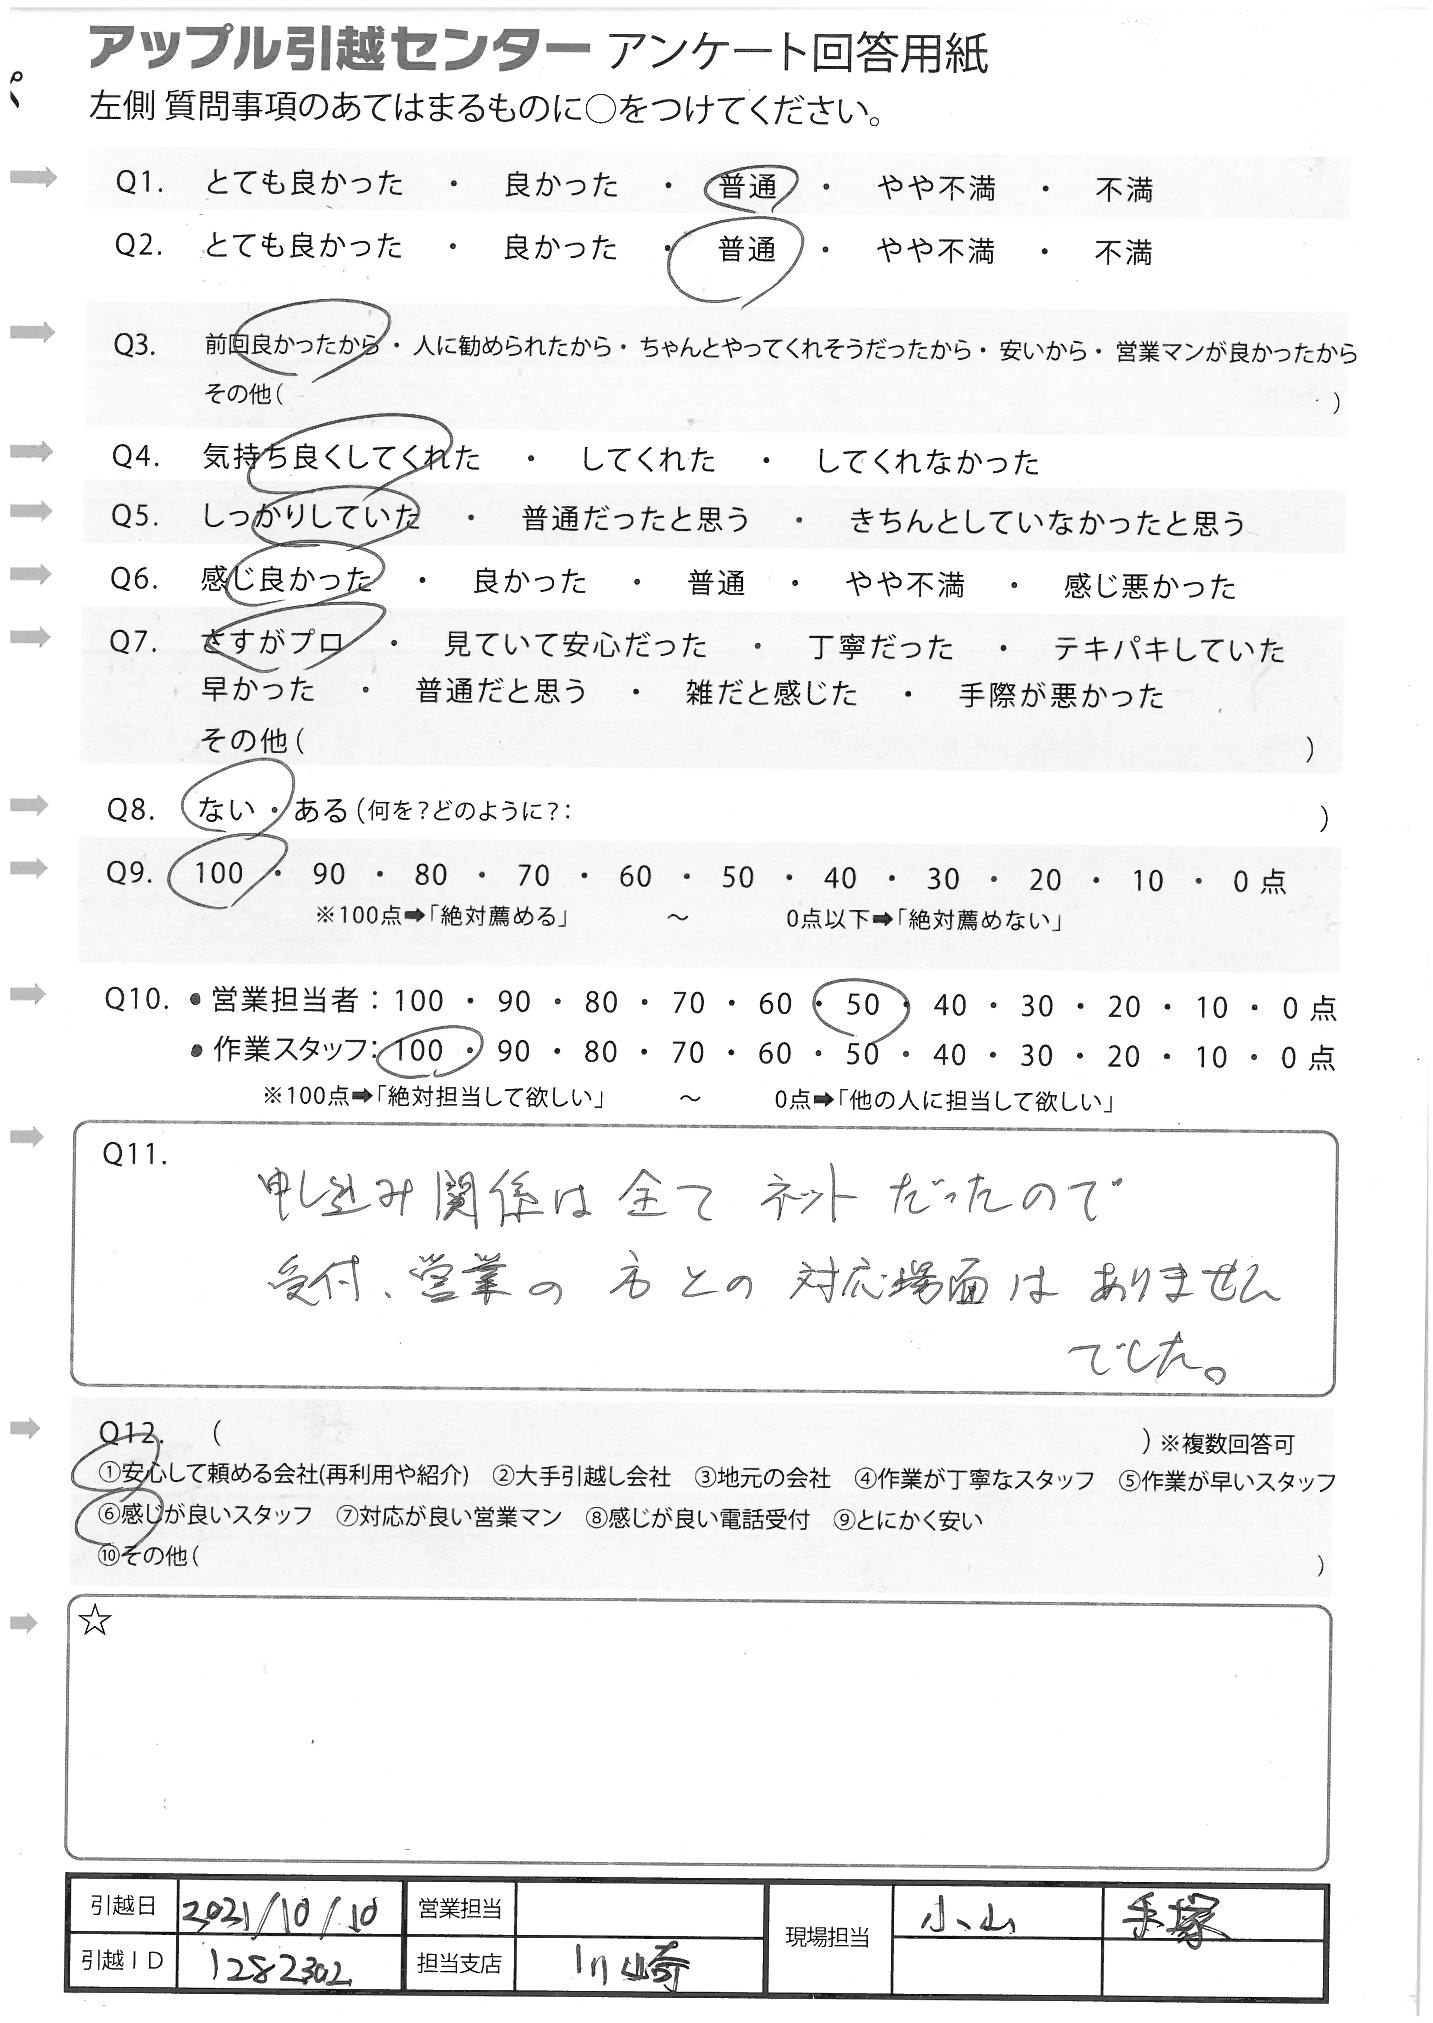 アップル引越センター アンケート回答用紙
左側 質問事項のあてはまるものに○をつけてください。
Q1. とても良かった ・ 良かった ・ 普通 ・ やや不満 ・ 不満
Q2. とても良かった ・ 良かった ・ 普通 ・ やや不満 ・ 不満
Q3. 前回良かったから・人に勧められたから・ちゃんとやってくれそうだったから・安いから・営業マンが良かったから
その他( )
Q4. 気持ち良くしてくれた ・ してくれた ・ してくれなかった
Q5. しっかりしていた ・ 普通だったと思う ・ きちんとしていなかったと思う
Q6. 感じ良かった ・ 良かった ・ 普通 ・ やや不満 ・ 感じ悪かった
Q7. さすがプロ ・ 見ていて安心だった ・ 丁寧だった ・ テキパキしていた
早かった ・ 普通だと思う ・ 雑だと感じた ・ 手際が悪かった
その他( )
Q8. ない ・ ある(何を?どのように?: )
Q9. 100 ・ 90 ・ 80 ・ 70 ・ 60 ・ 50 ・ 40 ・ 30 ・ 20 ・ 10 ・ 0 点
※100点➡「絶対薦める」 ～ 0点以下➡「絶対薦めない」
Q10. ● 営業担当者：100 ・ 90 ・ 80 ・ 70 ・ 60 ・ 50 ・ 40 ・ 30 ・ 20 ・ 10 ・ 0 点
● 作業スタッフ：100 ・ 90 ・ 80 ・ 70 ・ 60 ・ 50 ・ 40 ・ 30 ・ 20 ・ 10 ・ 0 点
※100点➡「絶対担当して欲しい」 ～ 0点➡「他の人に担当して欲しい」
Q11.
申し込み関係は全てネットだったので
受付、営業の方との対応場面はありません
でした。
Q12. ( ) ※複数回答可
①安心して頼める会社(再利用や紹介) ②大手引越し会社 ③地元の会社 ④作業が丁寧なスタッフ ⑤作業が早いスタッフ
⑥感じが良いスタッフ ⑦対応が良い営業マン ⑧感じが良い電話受付 ⑨とにかく安い
⑩その他( )
☆
引越日 2021/10/10 営業担当 現場担当 小山 手塚
引越ID 1282302 担当支店 川崎